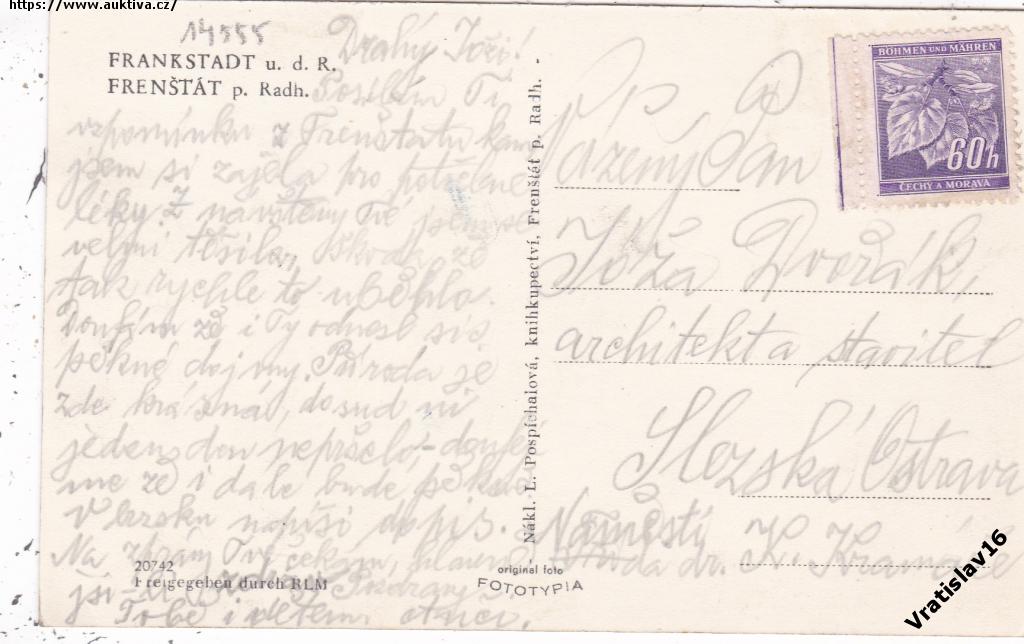 https://www.auktiva.cz/
14555
FRANKSTADT u. d. R.
FRENŠTÁT p. Radh.
Drahý Joži!
Posílám Ti
vzpomínku z Frenštátu kam
jsem si zajela pro potřebné
léky Z návštěvy Tvé jsem se
velmi těšila, škoda že
tak rychle to uběhlo.
Doufám že i Ty odnesl sis
pěkné dojmy. Příroda je
zde krásná, dosud ni
jeden den nepršelo, doufá
me že i dále bude pěkně
V brzsku napíši dopis.
Na
Tobě i dětem
20742
Freigegeben durch RLM
Nákl. L. Pospíchalová, knihkupectví, Frenštát p. Radh.
original foto
FOTOTYPIA
BÖHMEN UND MÄHREN
60h
ČECHY A MORAVA
Vážený Pan
Joža Dvořák
architekta stavitel
Slezská Ostrava
Náměstí dr. K. Kramáře
Vratislav16